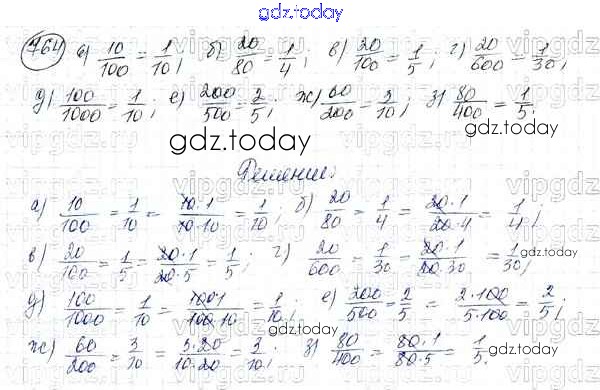 gdz.today
764 а) 10/100 = 1/10; б) 20/80 = 1/4; в) 20/100 = 1/5; г) 20/600 = 1/30;
д) 100/1000 = 1/10; е) 200/500 = 2/5; ж) 60/200 = 3/10; з) 80/400 = 1/5;
gdz.today
gdz.today
Решение:
а) 10/100 = 1/10 = 10·1/10·10 = 1/10; б) 20/80 = 1/4 = 20·1/20·4 = 1/4;
в) 20/100 = 1/5 = 20·1/20·5 = 1/5; г) 20/600 = 1/30 = 20·1/20·30 = 1/30;
д) 100/1000 = 1/10 = 100·1/100·10 = 1/10; е) 200/500 = 2/5 = 2·100/5·100 = 2/5;
gdz.today
ж) 60/200 = 3/10 = 3·20/10·20 = 3/10; з) 80/400 = 80·1/80·5 = 1/5.
gdz.today